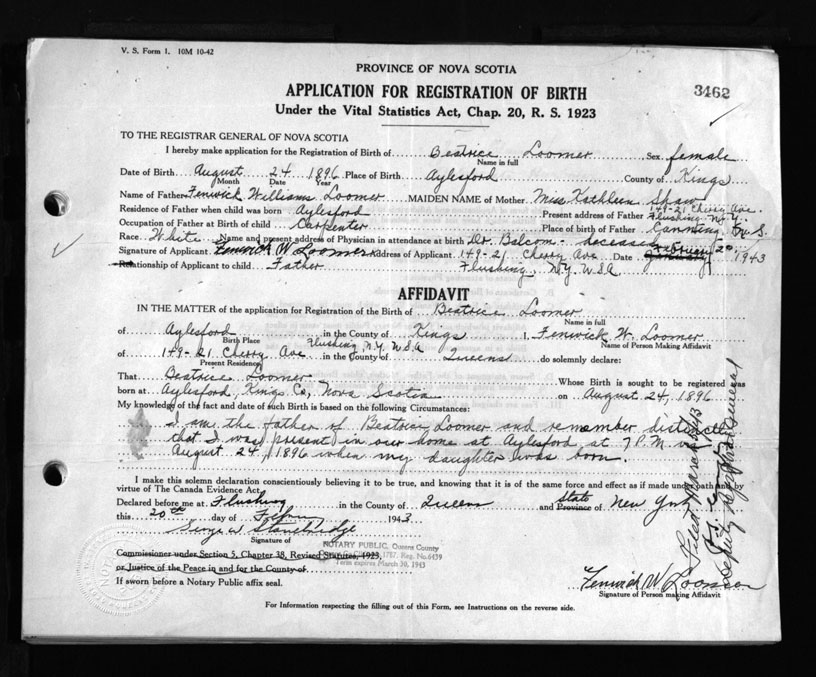 V. S. Form 1. 10M 10-42
PROVINCE OF NOVA SCOTIA
APPLICATION FOR REGISTRATION OF BIRTH
3462
Under the Vital Statistics Act, Chap. 20, R. S. 1923
TO THE REGISTRAR GENERAL OF NOVA SCOTIA
I hereby make application for the Registration of Birth of Beatrice Loomer Sex female
Name in full
Date of Birth August 24 1896 Place of Birth Aylesford County of Kings
Month Date Year
Name of Father Fenwick Williams Loomer MAIDEN NAME of Mother Miss Kathleen Shaw
149-21 Cherry Ave.
Residence of Father when child was born Aylesford Present address of Father Flushing N.Y.
Occupation of Father at Birth of child Carpenter Place of birth of Father Canning N.S.
Race White Name and present address of Physician in attendance at birth Dr. Balcom - deceased
February 20
Signature of Applicant Fenwick W Loomer Address of Applicant 149-21 Cherry Ave Date January 1943
Relationship of Applicant to child Father Flushing, N.Y. USA
AFFIDAVIT
IN THE MATTER of the application for Registration of the Birth of Beatrice Loomer
Name in full
of Aylesford in the County of Kings I, Fenwick W. Loomer
Birth Place Name of Person Making Affidavit
Flushing N.Y. USA
of 149-21 Cherry Ave in the County of Queens do solemnly declare:
Present Residence
That Beatrice Loomer Whose Birth is sought to be registered was
born at Aylesford, Kings Co, Nova Scotia on August 24, 1896
My knowledge of the fact and date of such Birth is based on the following Circumstances:
I am the father of Beatrice Loomer and remember distinctly
that I was present in our home at Aylesford at 7 P.M. on
August 24, 1896 when my daughter was born.
I make this solemn declaration conscientiously believing it to be true, and knowing that it is of the same force and effect as if made under oath and by
virtue of The Canada Evidence Act.
State
Declared before me at Flushing in the County of Queens and Province of New York
this 20th day of 1943
Signature of
NOTARY PUBLIC, Queens County
Commissioner under Section 5, Chapter 38, Revised Statutes, 1923,
1787, Reg. No. 6439
or Justice of the Peace in and for the County of
Term expires March 30, 1943
If sworn before a Notary Public affix seal.
Fenwick W Loomer
Signature of Person making Affidavit
For Information respecting the filling out of this Form, see Instructions on the reverse side.
Deputy Registrar General